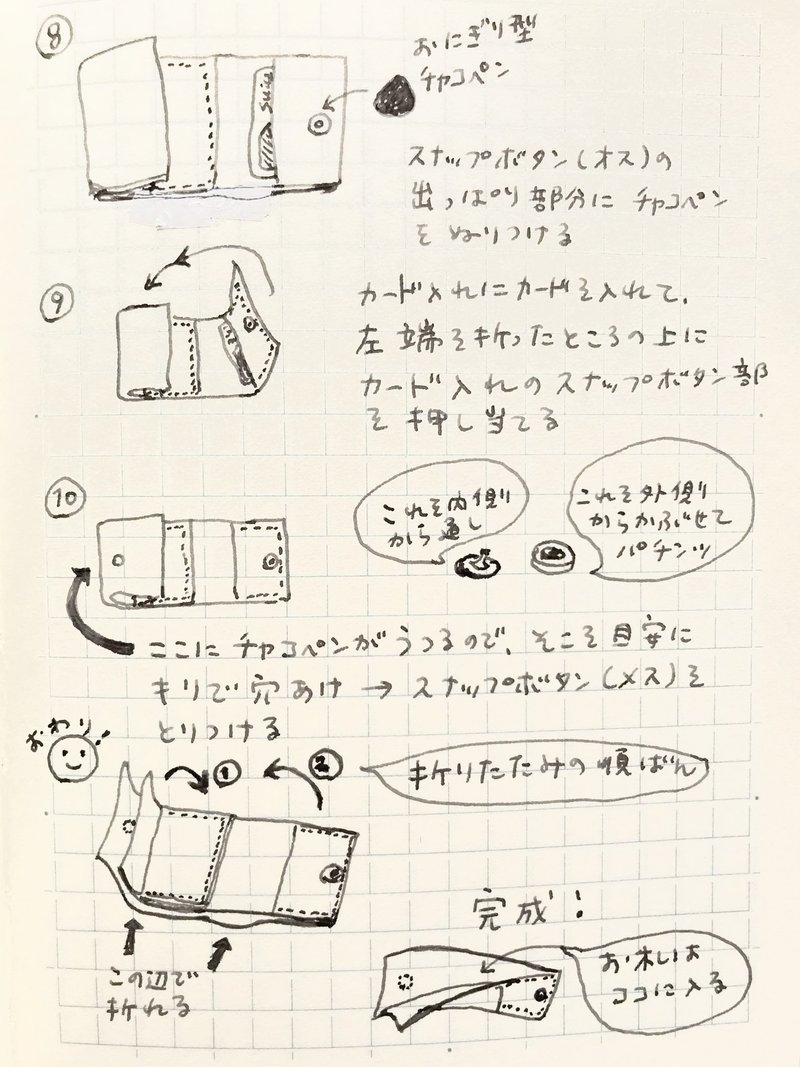 ⑧
おにぎり型
チャコペン
Suica
スナップボタン(オス)の
出っぱり部分に チャコペン
を ぬりつける
⑨
カード入れにカードを入れて、
左端を折ったところの上に
カード入れのスナップボタン部
を押し当てる
⑩
これを内側
から通し
これを外側
からかぶせて
パチンッ
ここに チャコペンが うつるので、そこを目安に
キリで穴あけ → スナップボタン(メス)を
とりつける
おわり!
① ②
折りたたみの順ばん
この辺で
折れる
完成!
お札は
ココに入る